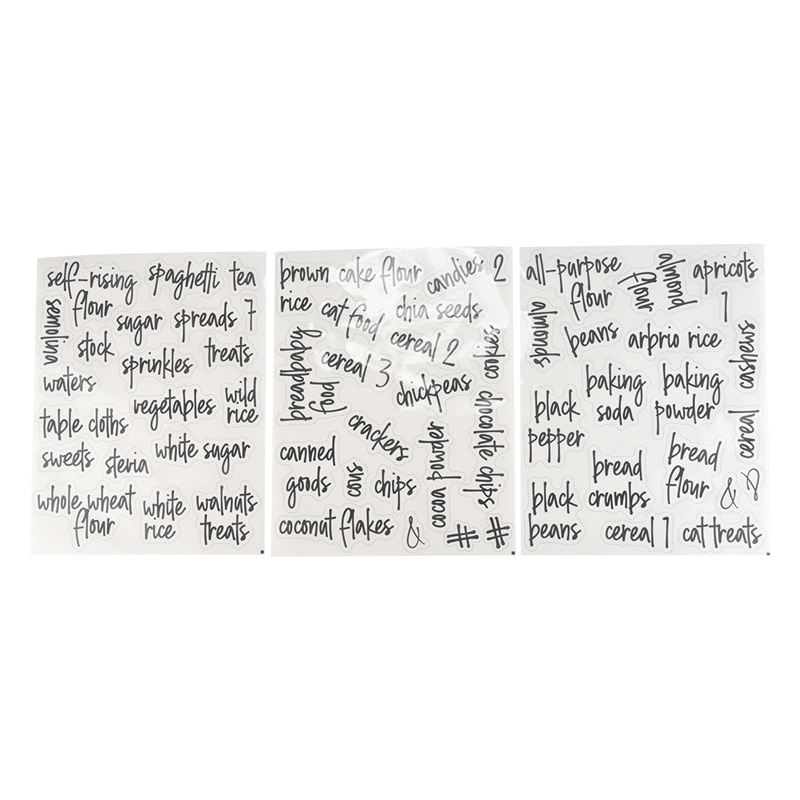 self-rising
flour
spaghetti
tea
semolina
sugar
spreads
7
stock
sprinkles
treats
waters
vegetables
wild
rice
table cloths
sweets
steria
white sugar
whole wheat
flour
white
rice
walnuts
treats
brown
rice
cake flour
candies 2
cat food
chia seeds
cereal 2
cookies
cereal 3
chickpeas
breadbaby
food
crackers
chocolate chips
canned
goods
cous
chips
cocoa powder
coconut flakes
&
#
#
all-purpose
flour
flour
apricots
1
almonds
beans
arbrio rice
cashews
baking
soda
baking
powder
black
pepper
cereal
bread
crumbs
bread
flour
&
black
beans
cereal 1
cat treats